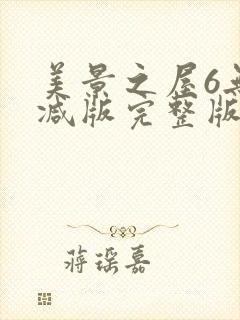 美景之屋6无
减版完整版
蒋琛嘉